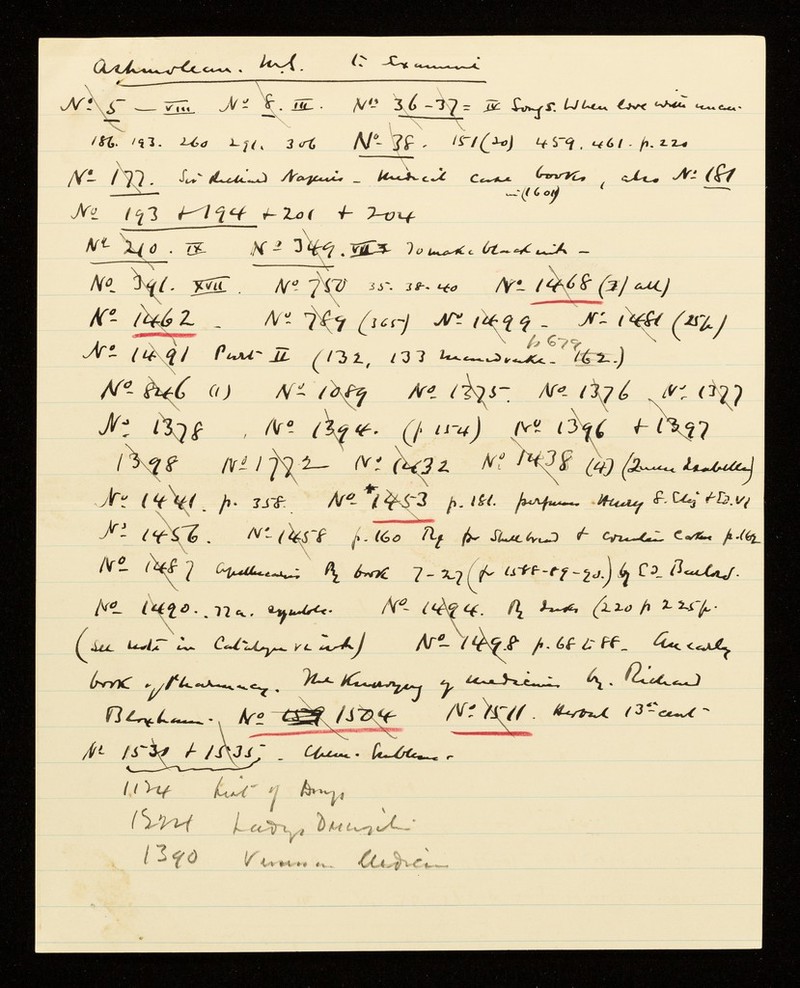 Ashmolean. M.S. to Examine
No 5 — VIII No 8. III. Nos 36-37 = IV Songs. When love with
186. 193. 260 291. 306 No 38. 151(20) 459. 461. p. 220
No 177. Sir Richard Napiers - Medical case books, also No 181
(1601)
No 193 + 194 + 201 + 204
No 210. IX No 349. To make black ink -
No 391. XVII. No 750 35. 38. 40 No 1468 (all)
No 1462 - No 789 (365) No 1499 - No 1481 (25p)
p 679
No 1491 Part II (132, 133 mandrake - 162.)
No 846 (1) No 1089 No 1375. No 1376. No 1377
No 1378, No 1394. (p 154) No 1396 + 1397
1398 No 1772 No 1432 No 1438 (4) (Queen Isabella)
No 1441. p. 358. No *1453 p. 181. perfumes Henry 8. Eliz + Ed. VI
No 1456. No 1458 p. 160 Rx for & Cakes p. 162
No 1487 apothecaries Rx book 7-27 (for 1588-89-90.) by Ed.
No 1490. 77a. symbols. No 1494. Rx Inks (220 p 225 p.
(See note in Catalogue re ink) No 1498 p. 68 to 88 - An early
book of Pharmacy. The Knowyng of medicines by. Richard
Bloxham. No 1504 No 1511. Herbal 13th cent -
No 1530 + 1535. - Chem. Emblems.
1124 List of Drugs
Ladys
1390 Medicin